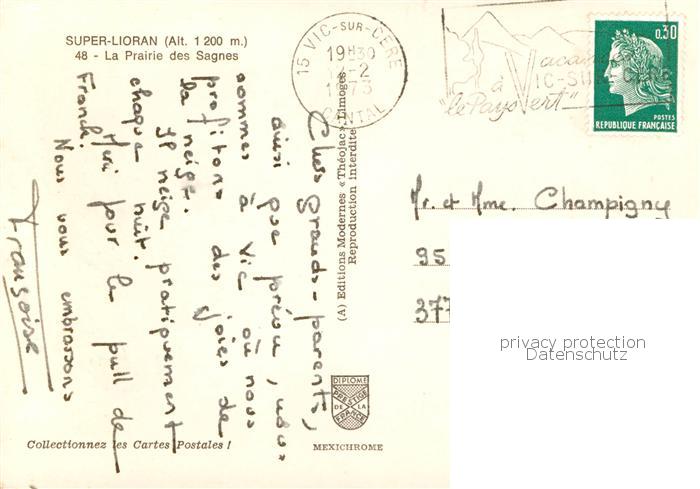 SUPER-LIORAN (Alt. 1 200 m.)
48 - La Prairie des Sagnes
15 VIC-SUR-CERE
19H30
12-2
1973
CANTAL
Vacances
à VIC-SUR-CERE
"le Pays Vert"
0,30
POSTES
REPUBLIQUE FRANÇAISE
Chers grands-parents,
ainsi que prévu, nous
sommes à Vic où nous
profitons des joies de
la neige.
Il neige pratiquement
chaque nuit.
Merci pour le pull de
Franck.
Nous vous embrassons
Françoise
(A) Editions Modernes «Théojac» Limoges
Reproduction Interdite
Mr. et Mme. Champigny
95
377
privacy protection
Datenschutz
DIPLOME
PRESTIGE
DE LA
FRANCE
MEXICHROME
Collectionnez les Cartes Postales !